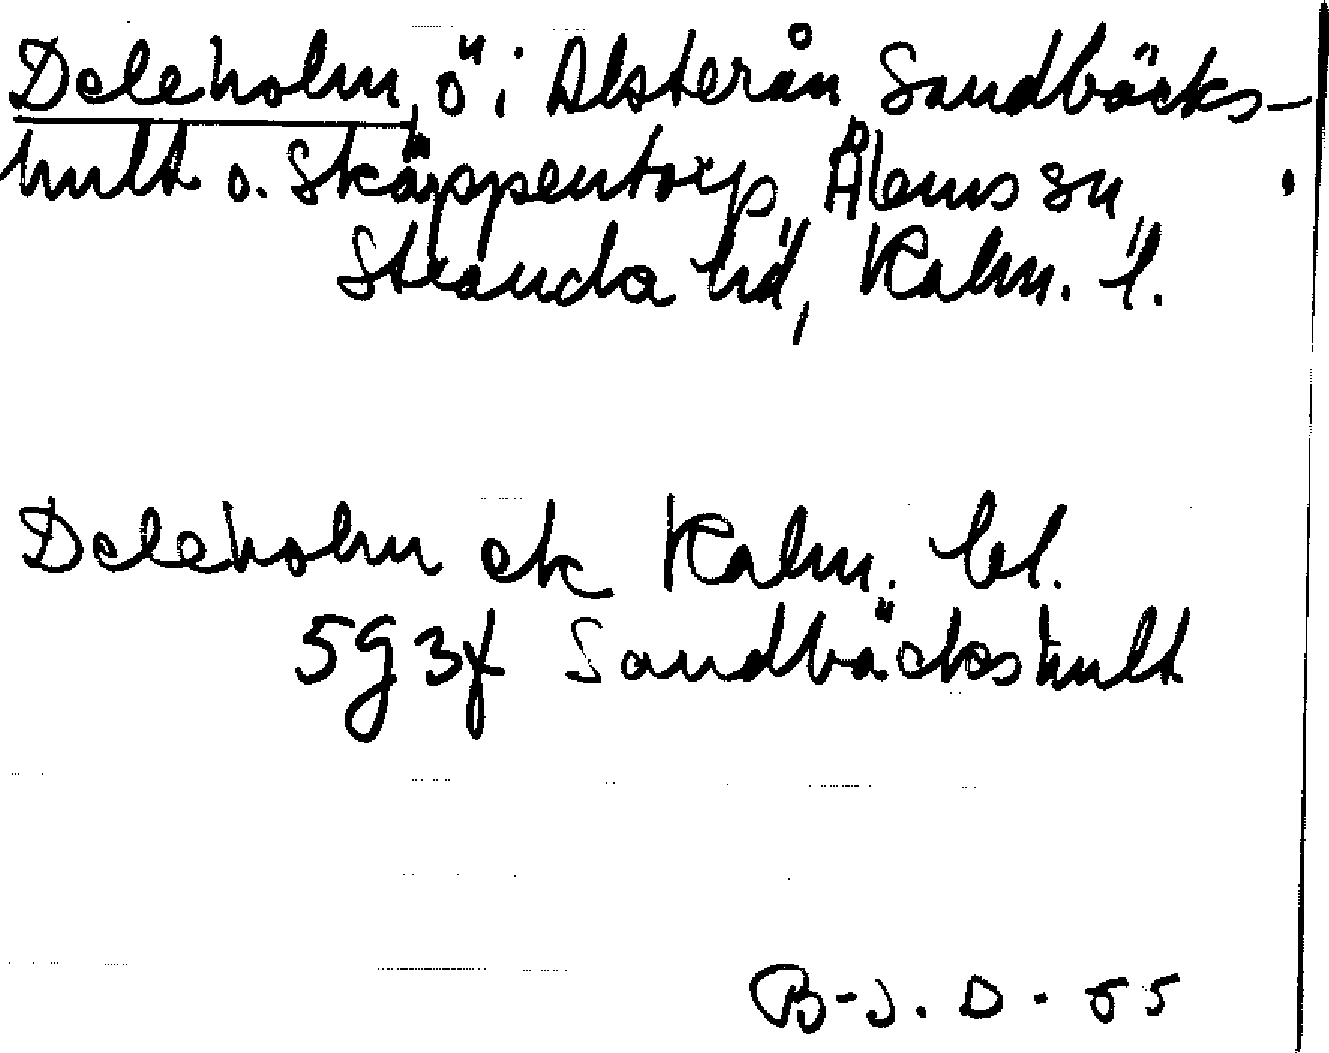 Deleholm, ö i Alsterån Sandbäcks-
hult o. Skäppentorp, Ålems sn,
Stranda hd, Kalm. l.
Deleholm ek Kalm. bl.
5g3f Sandbäckshult
B-J. D - 55